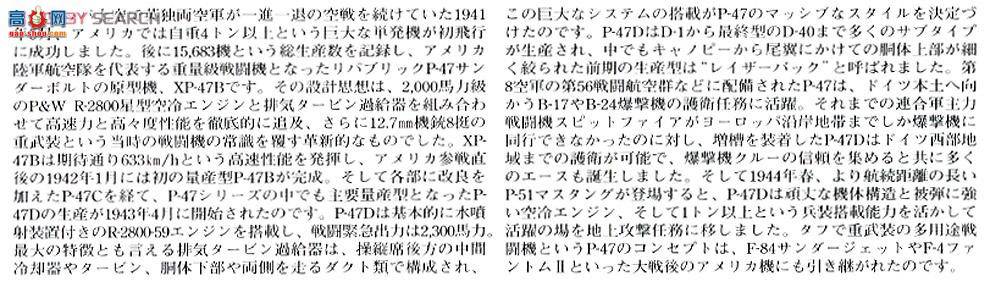 高网
www.gao-shou.com
BY SEARCH
英独両空軍が一進一退の空戦を続けていた1941
アメリカでは自重4トン以上という巨大な単発機が初飛行
に成功しました。後に15,683機という総生産数を記録し、アメリカ
陸軍航空隊を代表する重量級戦闘機となったリパブリックP-47サン
ダーボルトの原型機、XP-47Bです。その設計思想は、2,000馬力級
のP&W R-2800星型空冷エンジンと排気タービン過給器を組み合わ
せて高速力と高々度性能を徹底的に追及、さらに12.7mm機銃8挺の
重武装という当時の戦闘機の常識を覆す革新的なものでした。XP-
47Bは期待通り633km/hという高速性能を発揮し、アメリカ参戦直
後の1942年1月には初の量産型P-47Bが完成。そして各部に改良を
加えたP-47Cを経て、P-47シリーズの中でも主要量産型となったP-
47Dの生産が1943年4月に開始されたのです。P-47Dは基本的に水噴
射装置付きのR-2800-59エンジンを搭載し、戦闘緊急出力は2,300馬力。
最大の特徴とも言える排気タービン過給器は、操縦席後方の中間
冷却器やタービン、胴体下部や両側を走るダクト類で構成され、
この巨大なシステムの搭載がP-47のマッシブなスタイルを決定づ
けたのです。P-47DはD-1から最終型のD-40まで多くのサブタイプ
が生産され、中でもキャノピーから尾翼にかけての胴体上部が細
く絞られた前期の生産型は"レイザーバック"と呼ばれました。第
8空軍の第56戦闘航空群などに配備されたP-47は、ドイツ本土へ向
かうB-17やB-24爆撃機の護衛任務に活躍。それまでの連合軍主力
戦闘機スピットファイアがヨーロッパ沿岸地帯までしか爆撃機に
同行できなかったのに対し、増槽を装着したP-47Dはドイツ西部地
域までの護衛が可能で、爆撃機クルーの信頼を集めると共に多く
のエースも誕生しました。そして1944年春、より航続距離の長い
P-51マスタングが登場すると、P-47Dは頑丈な機体構造と被弾に強
い空冷エンジン、そして1トン以上という兵装搭載能力を活かして
活躍の場を地上攻撃任務に移しました。タフで重武装の多用途戦
闘機というP-47のコンセプトは、F-84サンダージェットやF-4ファ
ントムⅡといった大戦後のアメリカ機にも引き継がれたのです。